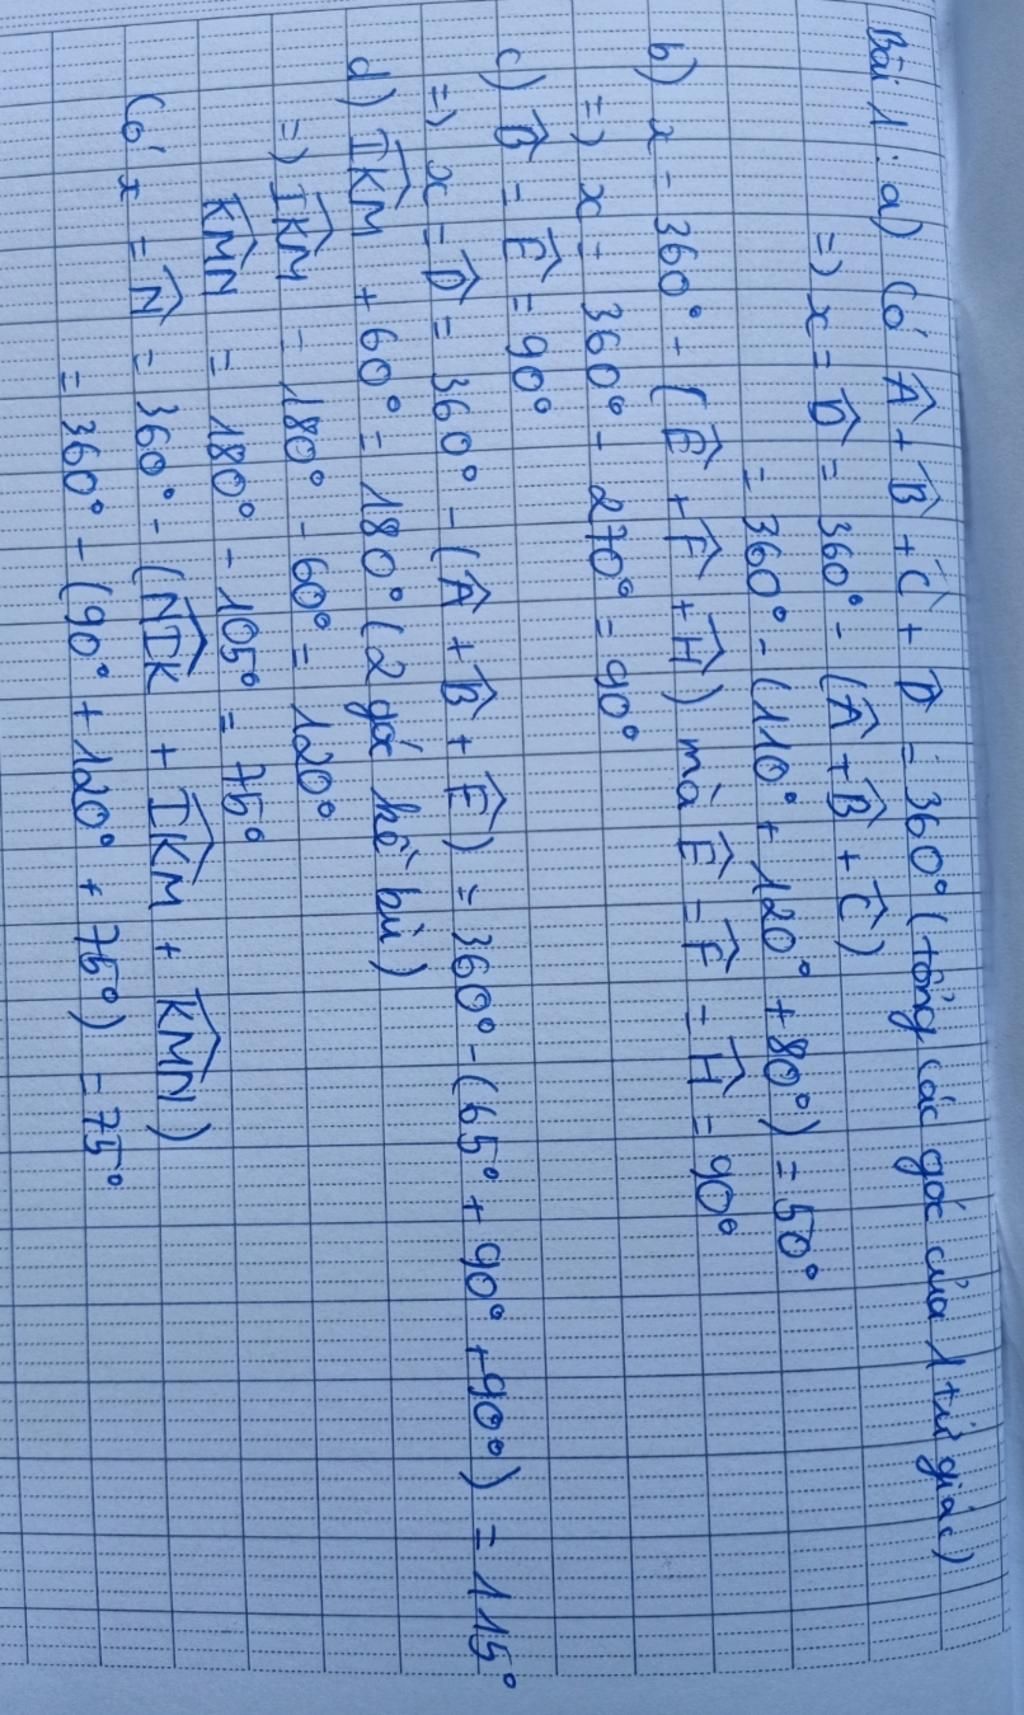 Bài 1: a) Có Â + B̂ + Ĉ + D̂ = 360° (tổng các góc của 1 tứ giác)
=> x = D̂ = 360° - (Â + B̂ + Ĉ)
= 360° - (110° + 120° + 80°) = 50°
b) x = 360° - (Ê + F̂ + Ĥ) mà Ê = F̂ = Ĥ = 90°
=> x = 360° - 270° = 90°
c) B̂ = Ê = 90°
=> x = D̂ = 360° - (Â + B̂ + Ê) = 360° - (65° + 90° + 90°) = 115°
d) IKM̂ + 60° = 180° (2 góc kề bù)
=> IKM̂ = 180° - 60° = 120°
KMN̂ = 180° - 105° = 75°
Có x = N̂ = 360° - (NIK̂ + IKM̂ + KMN̂)
= 360° - (90° + 120° + 75°) = 75°